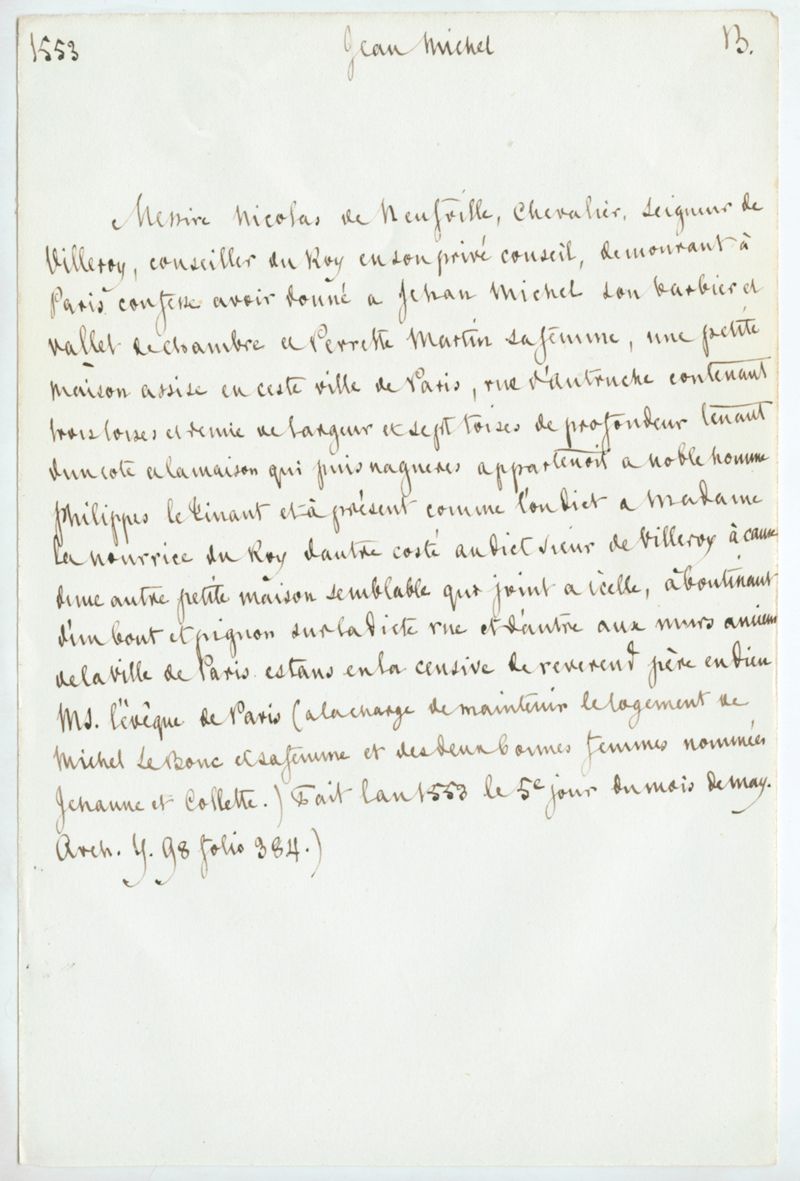 1553 Jean Michel B.
Messire Nicolas de Neufville, Chevalier, Seigneur de
Villeroy, conseiller du Roy en son privé conseil, demourant à
Paris confesse avoir donné a Jehan Michel son barbier et
vallet de chambre et Perrette Martin sa femme, une petite
maison assise en ceste ville de Paris, rue d'Autruche contenant
trois toises et demie de largeur et sept toises de profondeur tenant
dun coté a la maison qui puis nagueres appartenoit a noble homme
Philippes le Tinant et à présent comme l'on dict a Madame
la nourrice du Roy dautre costé audict Sieur de Villeroy à cause
dune autre petite maison semblable qui joint a icelle, àboutinant
d'un bout et pignon sur ladicte rue et d'autre aux murs anciens
de la Ville de Paris estans en la censive de reverend père en Dieu
MS. l'évêque de Paris (a la charge de maintenir le logement de
Michel et sa femme et des deux bonnes femmes nommées
Jehanne et Collette.) Fait lan 1553 le 5e jour du mois de may.
Arch. Y. 98 folio 384.)